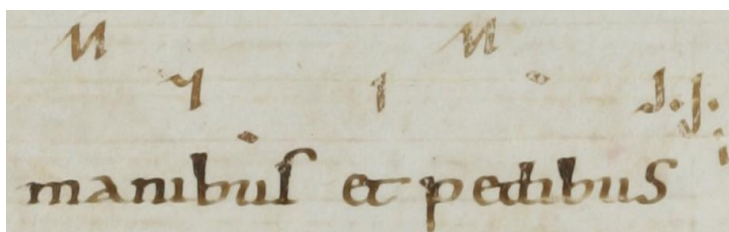 manibus et pedibus